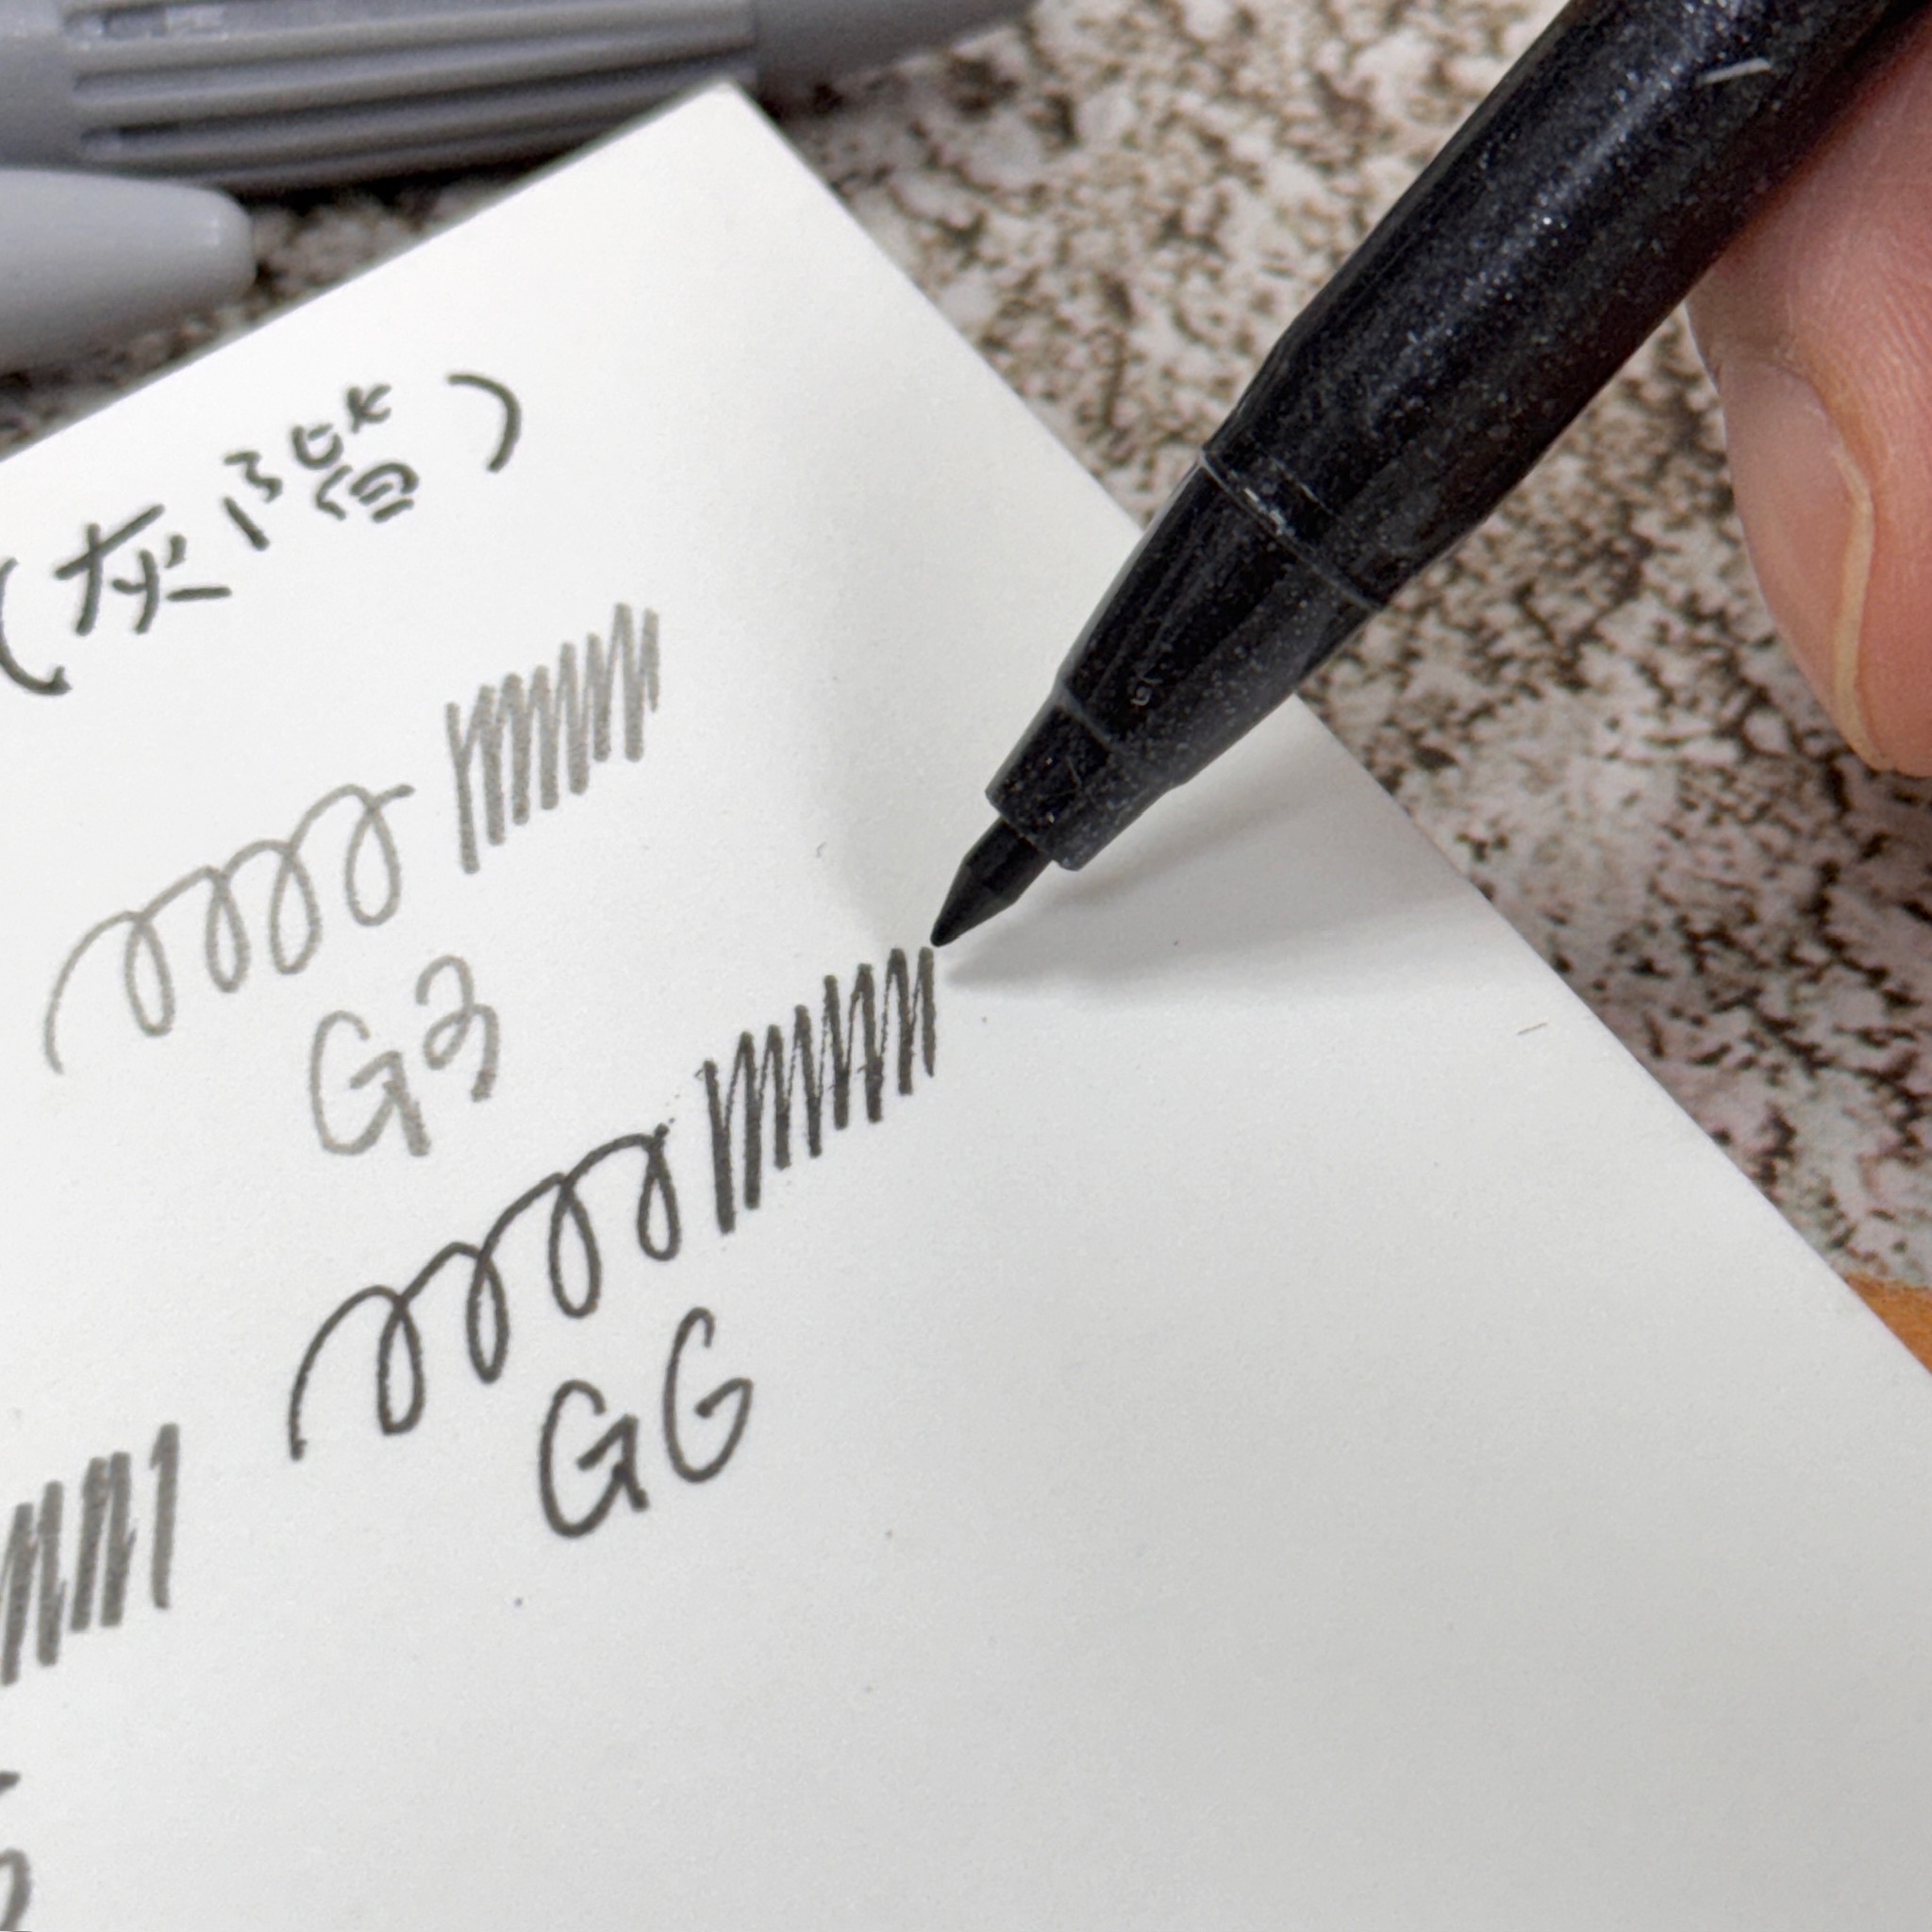 (灰階)
G3
G6